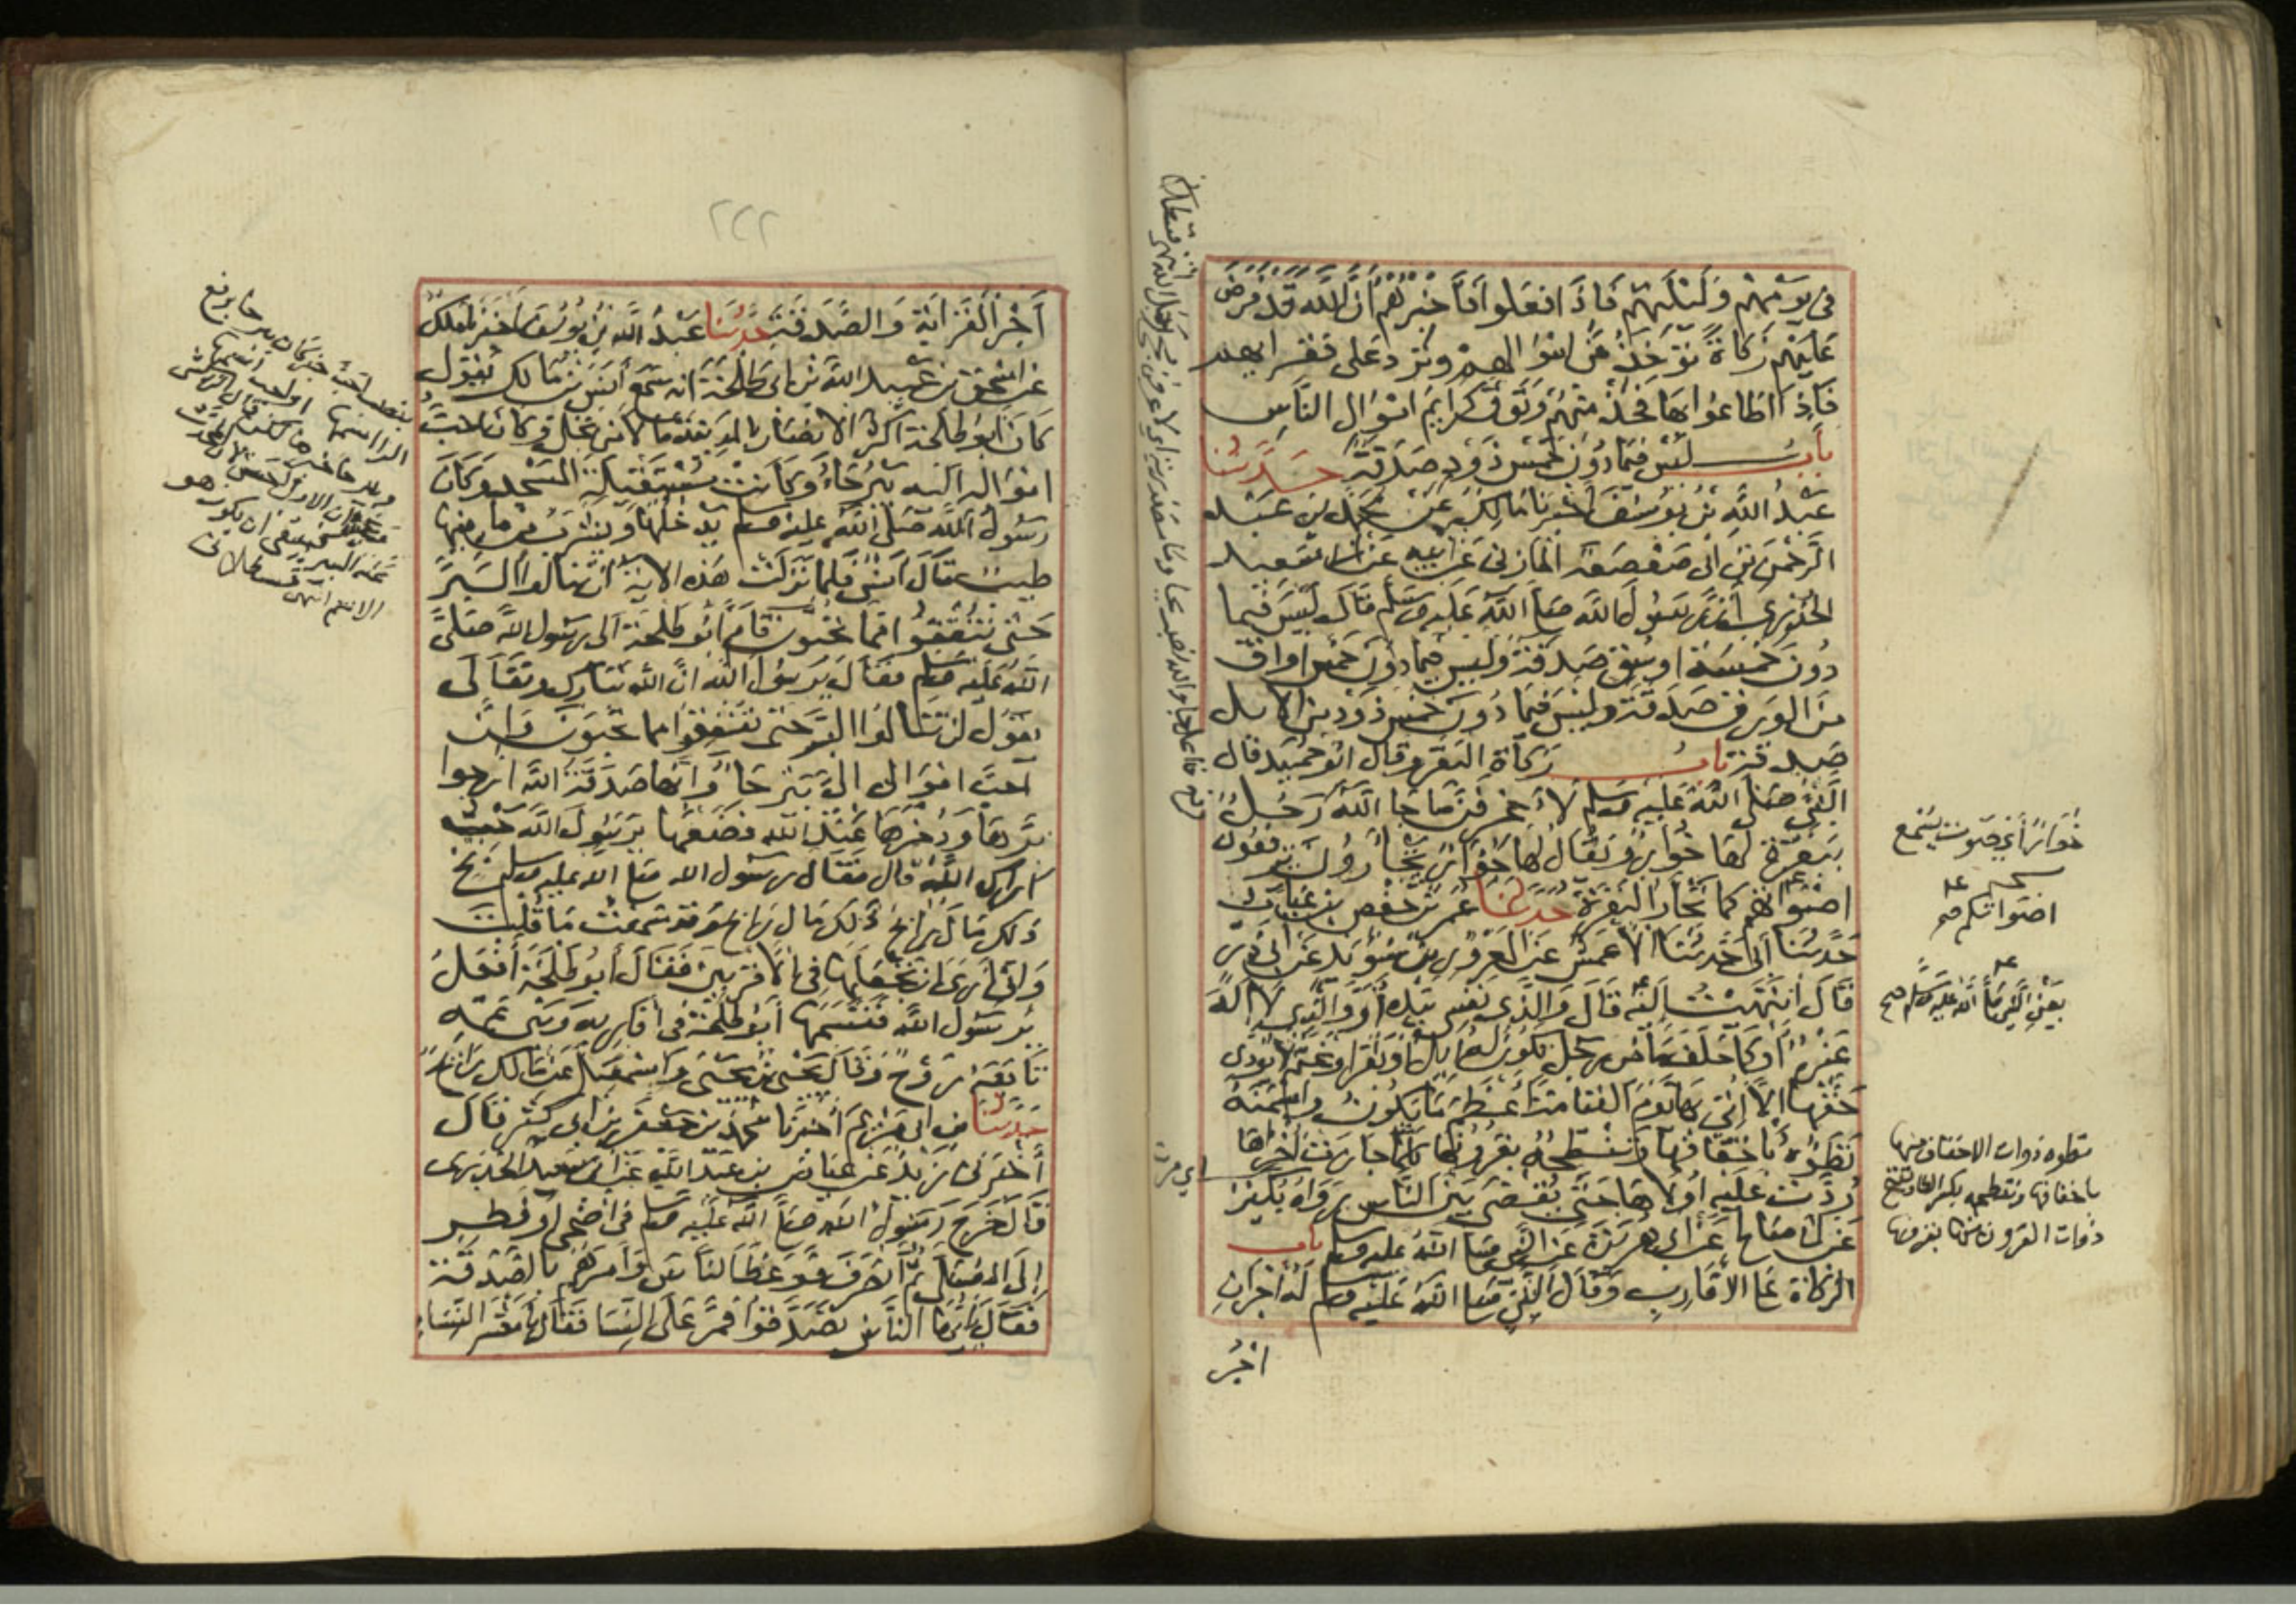 في يومهم وليلتهم فاذا فعلوا فاخبرهم ان الله قد فرض
عليهم زكاة تؤخذ من اموالهم وترد على فقرايهم
فاذا اطاعوا بها فخذ منهم وتوق كرايم اموال الناس
باب ليس فيما دون خمس ذود صدقة حدثنا
عبد الله بن يوسف اخبرنا مالك عن محمد بن عبد
الرحمن بن ابي صعصعة المازني عن ابيه عن ابي سعيد
الخدري ان رسول الله صلى الله عليه وسلم قال ليس فيما
دون خمسة اوسق صدقة وليس فيما دون خمس اواق
من الورق صدقة وليس فيما دون خمس ذود من الابل
صدقة باب زكاة البقر وقال ابو حميد قال
النبي صلى الله عليه وسلم لاعرفن ما جا الله رجل
ببقرة لها خوار ويقال لها جوار يجارون يرفعون
اصواتهم كما تجار البقرة حدثنا عمر بن حفص بن غياث
حدثنا ابي حدثنا الاعمش عن المعرور بن سويد عن ابي ذر
قال انتهيت اليه قال والذي نفسي بيده او والذي لا اله
غيره او كما حلف ما من رجل تكون له ابل او بقر او غنم لا يودي
حقها الا اتي بها يوم القيامة اعظم ما تكون واسمنه
تطؤه باخفافها وتنطحه بقرونها كلما جازت اخراها
ردت عليه اولاها حتى يقضى بين الناس رواه بكير
عن ابي صالح عن ابي هريرة عن النبي صلى الله عليه وسلم باب
الزكاة على الاقارب وقال النبي صلى الله عليه وسلم له اجران
اجر
خوار اي صوت يسمع
اصواتكم صح
يعني النبي صلى الله عليه وسلم صح
تطوه ذوات الاخفاف منها
باخفافها وتنطحه بكسر الطا وتفتح
ذوات القرون منها بقرونها
اجر القرابة والصدقة حدثنا عبد الله بن يوسف اخبرنا مالك
عن اسحق بن عبد الله بن ابي طلحة انه سمع انس بن مالك يقول
كان ابو طلحة اكثر الانصار بالمدينة مالا من نخل وكان احب
امواله اليه بيرحاء وكانت مستقبلة المسجد وكان
رسول الله صلى الله عليه وسلم يدخلها ويشرب من ما فيها
طيب قال انس فلما نزلت هذه الاية لن تنالوا البر
حتى تنفقوا مما تحبون قام ابو طلحة الى رسول الله صلى
الله عليه وسلم فقال يرسول الله ان الله تبارك وتعالى
يقول لن تنالوا البر حتى تنفقوا مما تحبون وان
احب اموالي الي بيرحاء وانها صدقة لله ارجوا
برها وذخرها عند الله فضعها يرسول الله حيث
اراك الله قال فقال رسول الله صلى الله عليه وسلم بخ
ذلك مال رابح ذلك مال رابح وقد سمعت ما قلت
واني ارى ان تجعلها في الاقربين فقال ابو طلحة افعل
يرسول الله فقسمها ابو طلحة في اقاربه وبني عمه
تابعه روح وقال يحيى بن يحيى واسمعيل عن مالك رايح
حدثنا ابن ابي مريم اخبرنا محمد بن جعفر بن ابي كثير قال
اخبرني زيد عن عياض بن عبد الله عن ابي سعيد الخدري
قال خرج رسول الله صلى الله عليه وسلم في اضحى او فطر
الى المصلى ثم انصرف فوعظ الناس وامرهم بالصدقة
فقال ايها الناس تصدقوا فمر على النسا فقال يا معشر النساء